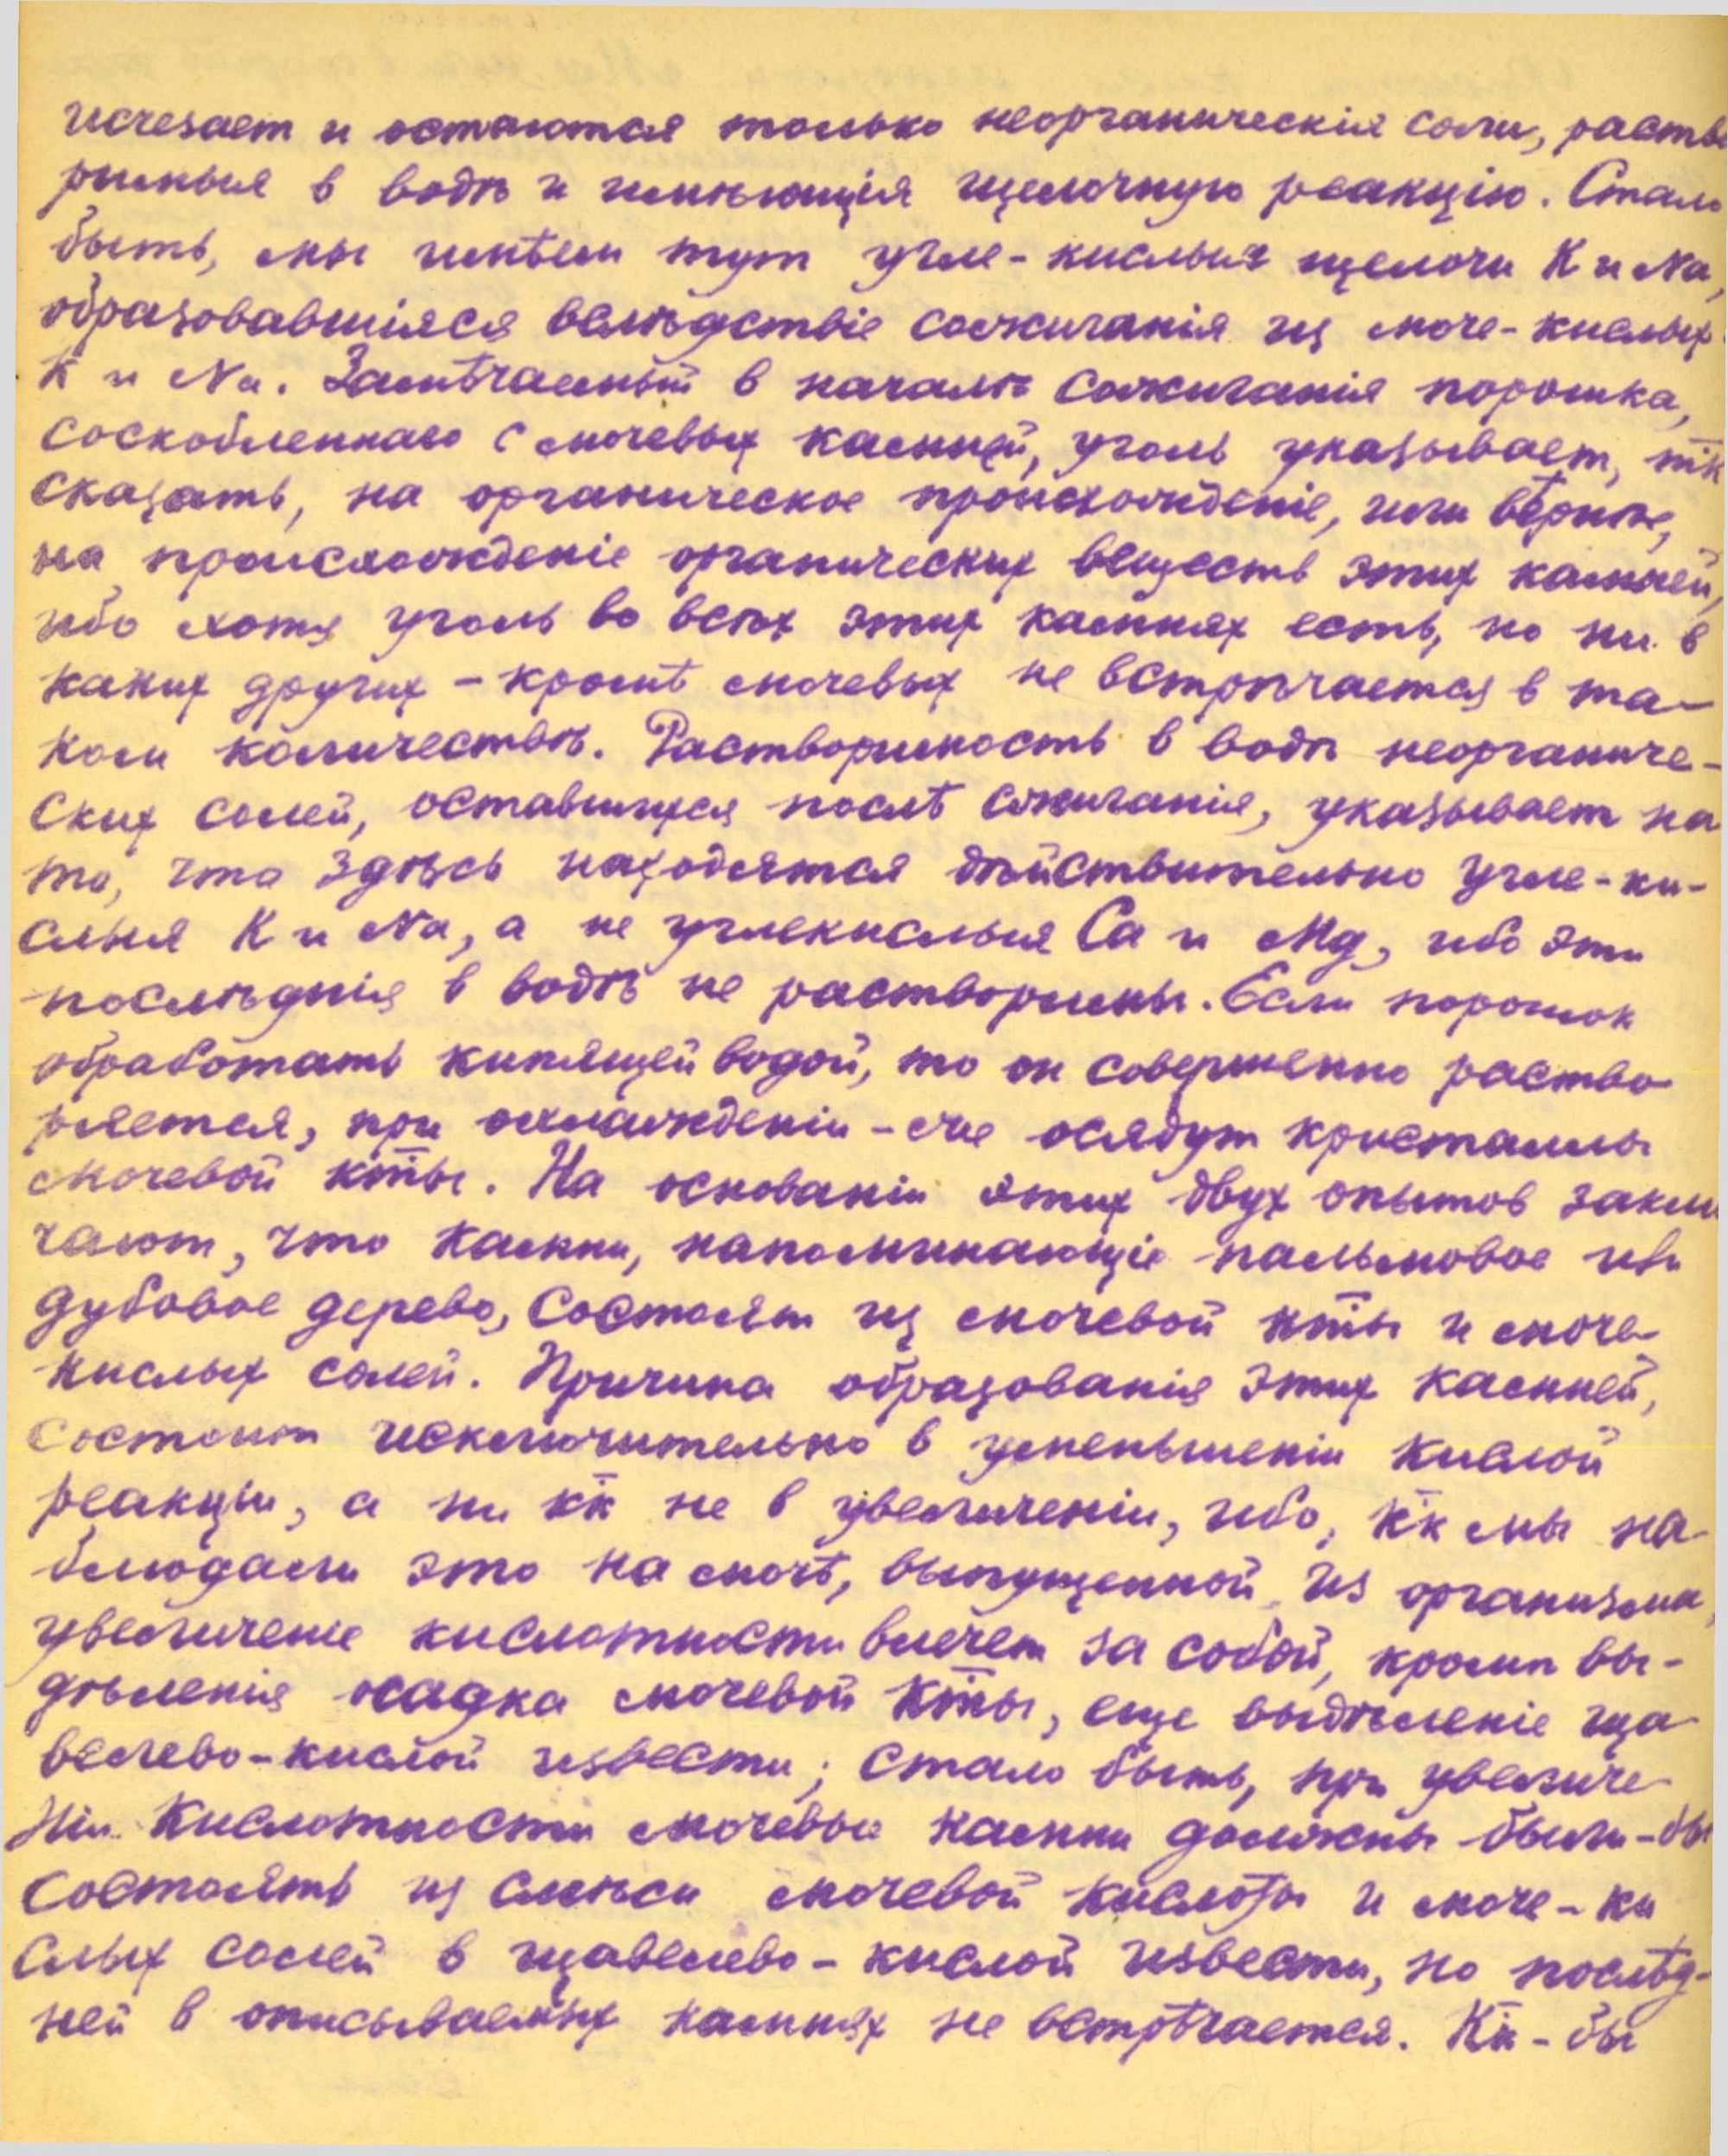 исчезает и остаются только неорганическія соли, раство
римыя в водѣ и имѣющія щелочную реакцію. Стало
быть, мы имѣем тут угле-кислыя щелочи K и Na,
образовавшіяся вслѣдствіе сожиганія из моче-кислых
K и Na. Замѣчаемый в началѣ сожиганія порошка,
соскобленнаго с мочевых камней, уголь указывает, тк
сказать, на органическое происхожденіе, или вѣрнѣе,
на происхожденіе органических веществ этих камней,
ибо хотя уголь во всѣх этих камнях есть, но ни в
каких других - кромѣ мочевых не встрѣчается в та-
ком количествѣ. Растворимость в водѣ неорганиче-
ских солей, оставшихся послѣ сжиганія, указывает на
то, что здѣсь находятся дѣйствительно угле-ки-
слыя K и Na, а не углекислыя Ca и Mg, ибо эти
послѣднія в водѣ не растворимы. Если порошок
обработать кипящей водой, то он совершенно раство
ряется, при охлажденіи - же осядут кристаллы
мочевой кты. На основаніи этих двух опытов заклю
чают, что камни, напоминающіе пальмовое или
дубовое дерево, состоят из мочевой кты и моче-
кислых солей. Причина образованія этих камней,
состоит исключительно в уменьшеніи кислой
реакціи, а ни кк не в увеличеніи, ибо, кк мы на-
блюдали это на мочѣ, выпущенной из организма,
увеличение кислотности влечет за собой, кромѣ вы-
дѣленія осадка мочевой кты, еще выдѣленіе ща-
велево-кислой извести; стало быть, при увеличе-
ніи кислотности мочевые камни должны были-бы
состоять из смѣси мочевой кислоты и моче-ки
слых солей в щавелево-кислой извести, но послѣд-
ней в описываемых камнях не встрѣчается. Кк-бы